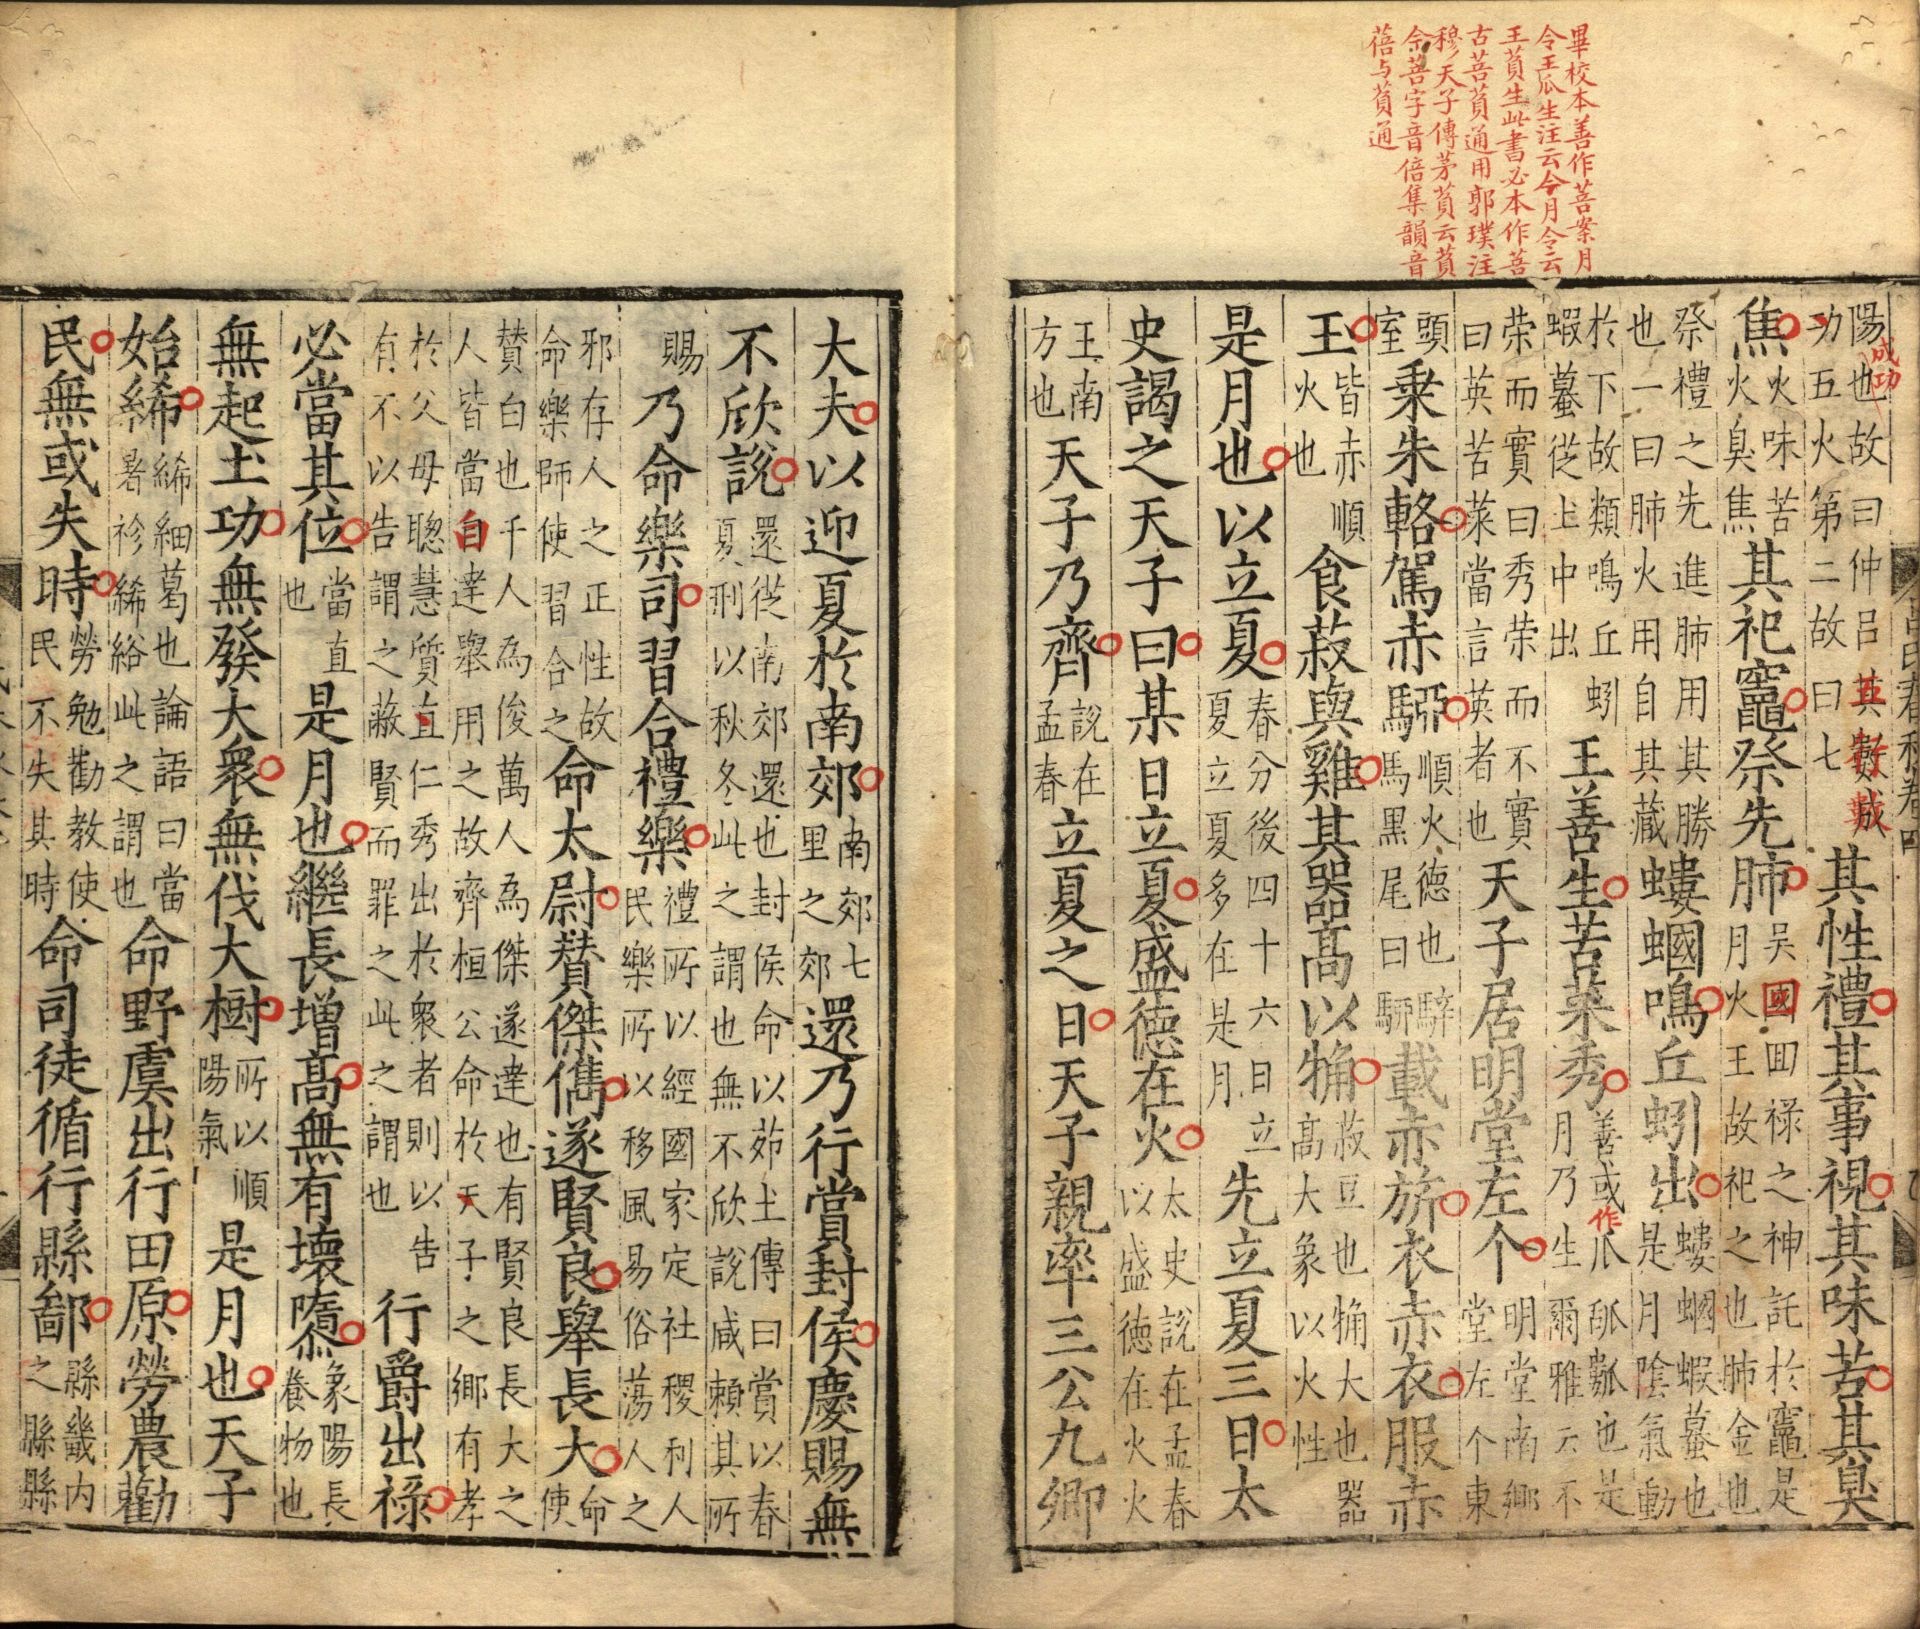 畢校本善作菩案月
令王瓜生注云今月令云
王萯生此書必本作菩
古菩萯通用郭璞注
穆天子傳茅萯云萯
今菩字音倍集韻音
蓓与萯通
陽也成功故曰仲呂其數成功五火第二故曰七其性禮其事視其味苦其臭
焦火味苦火臭焦其祀竈祭先肺吳國回祿之神託於竈是月火王故祀之也肺金也
祭禮之先進肺用其勝也一曰肺火用自其藏螻蟈鳴丘蚓出螻蟈蝦蟇也是月陰氣動
於下故類鳴丘蚓蝦蟇從上中出王善生苦菜秀善或作瓜瓠也是月乃生爾雅云不
荣而實曰秀荣而不實曰英苦菜當言英者也天子居明堂左个明堂南鄉堂左个東
頭室乗朱輅駕赤順火德也馬黑尾曰載赤旂衣赤衣服赤
王皆赤順火也食菽與雞其器高以觕菽豆也觕大也器高大象以火性
是月也以立夏春分後四十六日立夏立夏多在是月先立夏三日太
史謁之天子曰某日立夏盛德在火太史說在孟春以盛德在火火
王南方也天子乃齊說在孟春立夏之日天子親率三公九卿
大夫以迎夏於南郊南郊七里之郊還乃行賞封侯慶賜無
不欣說還從南郊還也封侯命以茆土傳曰賞以春夏刑以秋冬此之謂也無不欣說咸賴其所
賜乃命樂司習合禮樂禮所以經國家定社稷利人民樂所以移風易俗蕩人之
邪存人之正性故命樂師使習合之命太尉贊傑儁遂賢良舉長大命使
贊白也千人為俊萬人為傑遂達也有賢良長大之人皆當自達舉用之故齊桓公命於天子之鄉有孝
於父母聰慧質直仁秀出於衆者則以告有不以告謂之蔽賢而罪之此之謂也行爵出祿
必當其位當直也是月也繼長增高無有壞隳象陽長養物也
無起土功無發大衆無伐大樹所以順陽氣是月也天子
始絺絺細葛也論語曰當暑袗絺綌此之謂也命野虞出行田原勞農勸
民無或失時勞勉勸教使民不失其時命司徒循行縣鄙縣畿内之縣縣